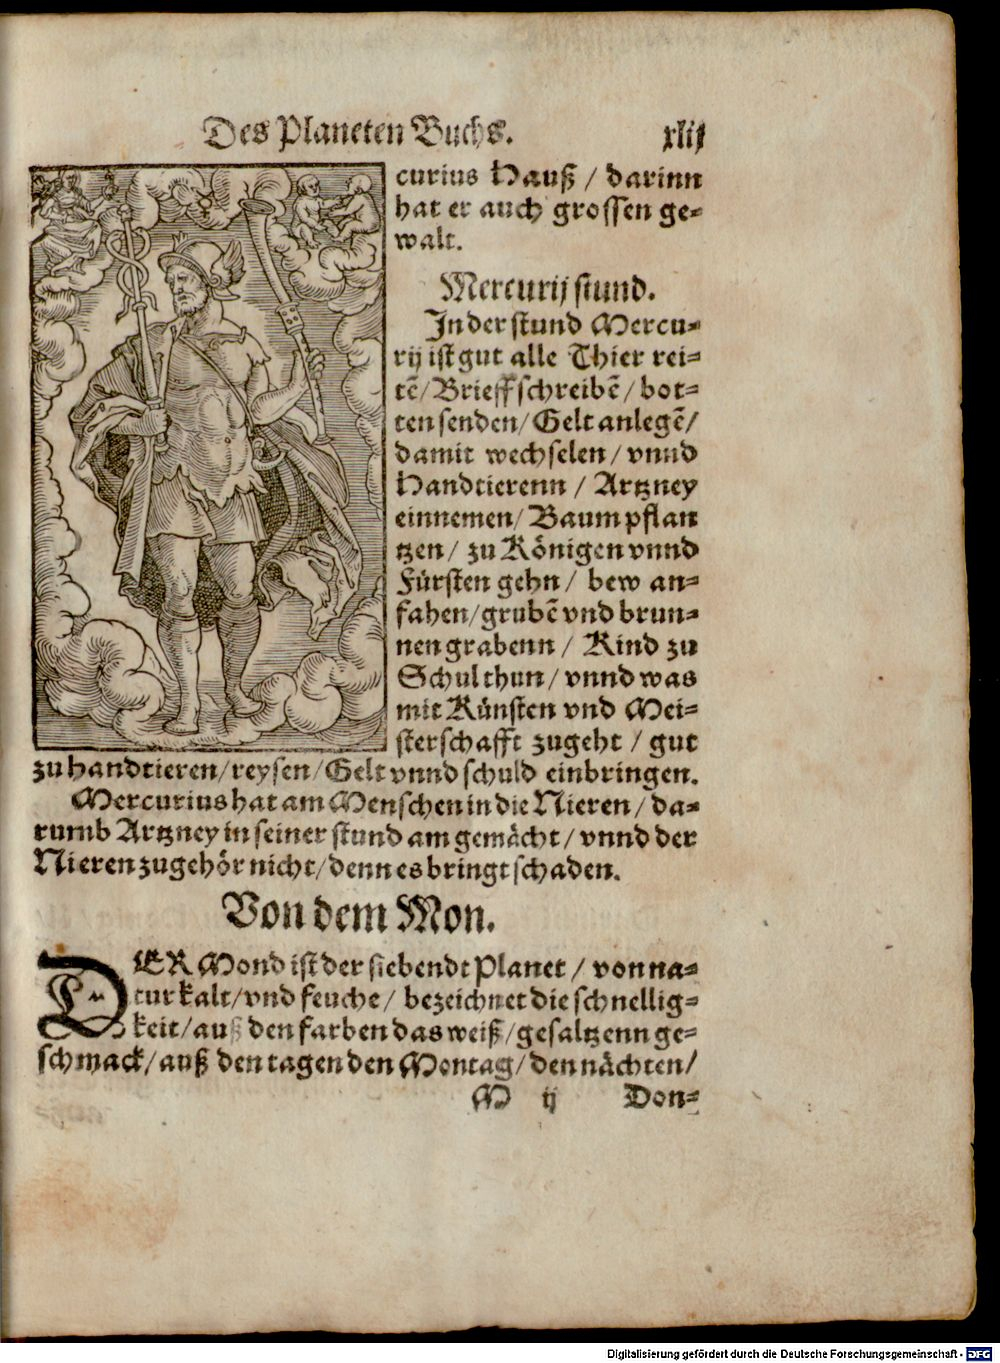 Des Planeten Buchs. xliij
curius Hauß / darinn
hat er auch grossen ge=
walt.
Mercurij stund.
In der stund Mercu=
rij ist gut alle Thier rei=
tẽ/ Brieff schreibẽ / bot=
ten senden/ Gelt anlegẽ/
damit wechselen / vnnd
Handtierenn / Artzney
einnemen/ Baum pflan
tzen/ zu Königen vnnd
Fürsten gehn / bew an=
fahen/ grubẽ vnd brun=
nen grabenn / Kind zu
Schul thun/ vnnd was
mit Künsten vnd Mei=
sterschafft zugeht / gut
zu handtieren/ reysen/ Gelt vnnd schuld einbringen.
Mercurius hat am Menschen in die Nieren / da=
rumb Artzney in seiner stund am gemächt / vnnd der
Nieren zugehör nicht/ denn es bringt schaden.
Von dem Mon.
DER Mond ist der siebendt Planet / von na=
tur kalt/ vnd feuche / bezeichnet die schnellig=
keit/ auß den farben das weiß/ gesaltzenn ge=
schmack/ auß den tagen den Montag/ den nächten/
M ij Don=
Digitalisierung gefördert durch die Deutsche Forschungsgemeinschaft - DFG